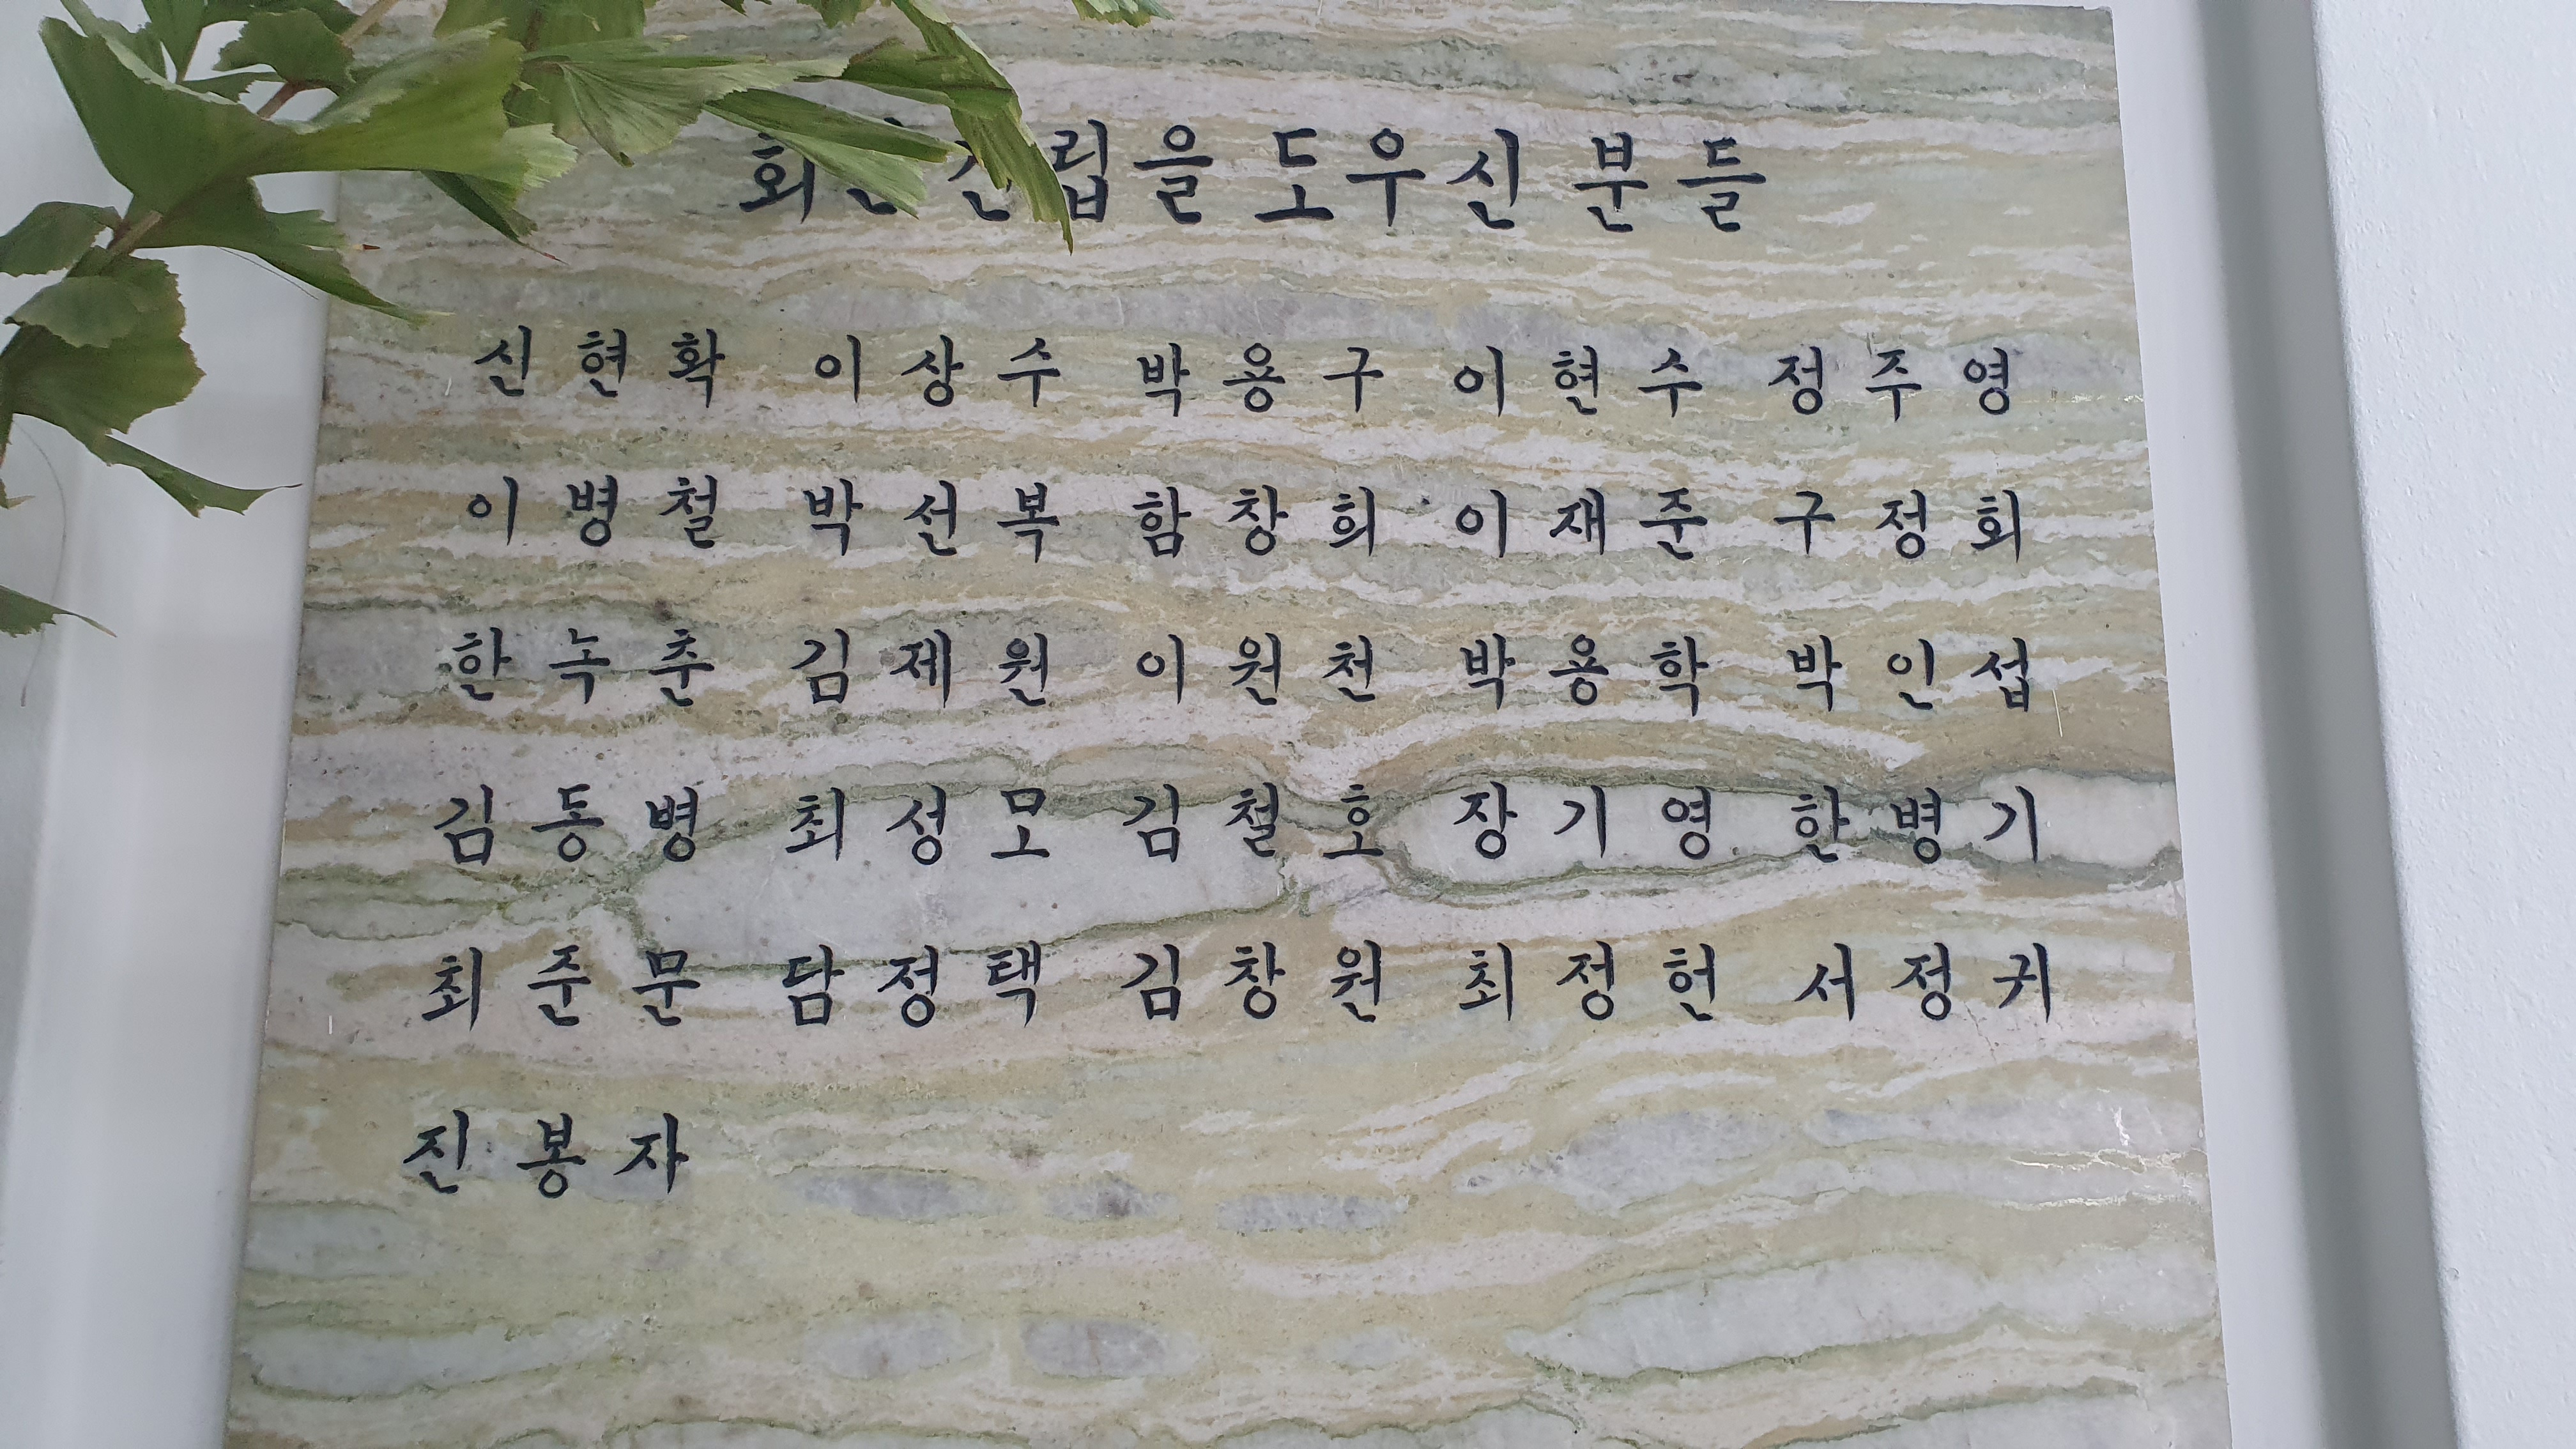 도우신 분들
신현확 이상수 박용구 이현수 정주영
이병철 박선복 함창희 이재준 구정회
한녹춘 김제원 이원천 박용학 박인섭
김동병 최성모 김철호 장기영 한병기
최준문 담정택 김창원 최정헌 서정귀
진봉자